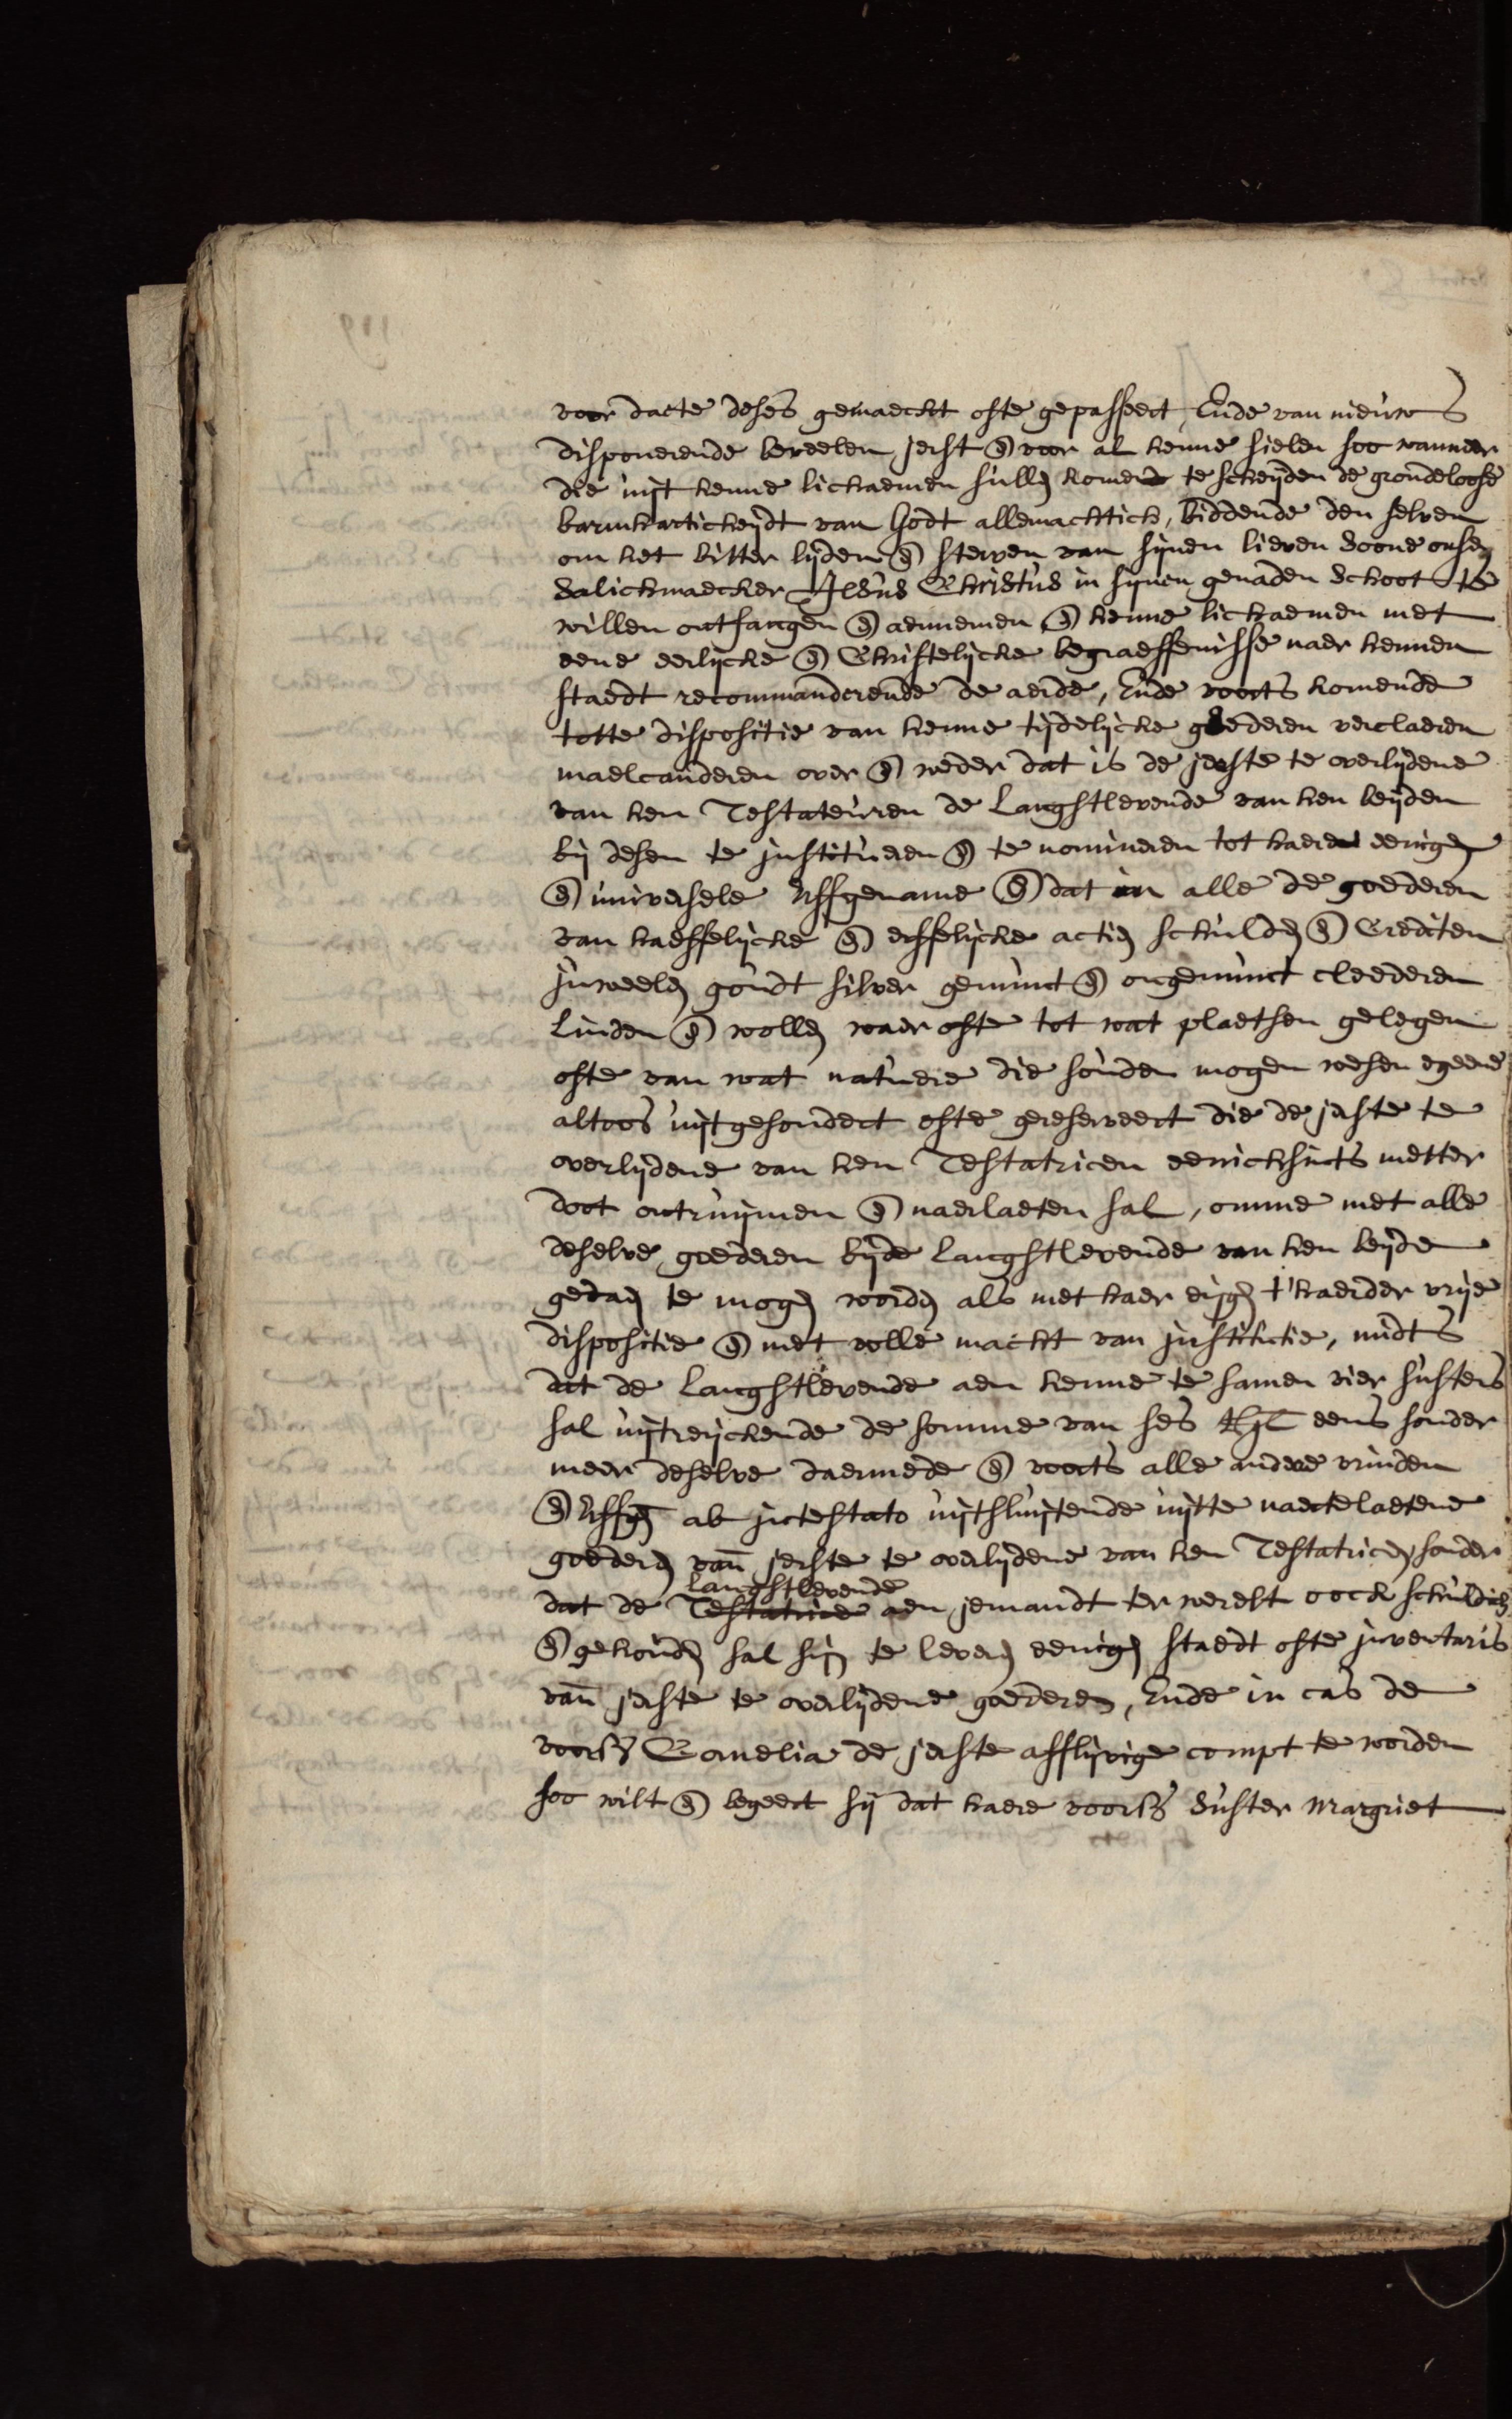 voor daete deses gemaeckt ofte gepasseert, Ende van nieuws
disponerende bevelen jerst en voor al henne sielen soo wanneer
die uijt henne lichaemen sullen komen te scheijden de grondeloose
barmhartickeijdt van Godt allemachtich, biddende den selven
om het bitter lijden en sterven van sijnen lieven Soone onsen
Salichmaecker Jesus Christus in sijnen genaden schoot te
willen ontfangen en aennemen en henne lichaemen met
eene eerlijcke en Christelijcke begraeffenisse naer hennen
staedt recommanderende de aerde, Ende voorts komende
totte dispositie van henne tijdelijcke goederen verclaeren
maelcanderen over en weder dat is de jerste te overlijdene
van hen Testateuren de langhstlevende van hen beijden
bij desen te institueren en te nomineren tot haeren eenigen
en universele Erffgename en dat in alle de goederen
van haeffelijcke en erffelijcke actien schulden en Crediten
juweelen goudt silver gemunt en ongemunt cleederen
linden en wollen waer ofte tot wat plaetsen gelegen
ofte van wat natuere die souden mogen wesen egeene
altoos uijtgesondert ofte gereserveert die de jerste te
overlijdene van hen Testatricen eenichsints metter
doot ontruijmen en naerlaeten sal, omme met alle
deselve goederen bijde langhstlevende van hen beijde
gedaen te mogen worden als met haer eijgen t'haerder vrije
dispositie en met volle macht van institutie, midts
dat de langhstlevende aen henne te samen vier susters
sal uijtreijckende de somme van ses eens sonder
meer deselve daermede en voorts alle andere vrinden
en Erffgen ab intestato uijtsluijtende uijtte naertelaetene
goederen van jerste te overlijdene van hen Testatricen, sonder
dat de Testatrice langhstlevende aen jemandt ter werelt oock schuldich
en gehouden sal sijn te leveren eenigen staedt ofte inventaris
van jerste te overlijdene goederen, Ende in cas de
voors Cornelia de jerste afflijvige compt te worden
soo wilt en begeert sij dat haere voors suster Margriet